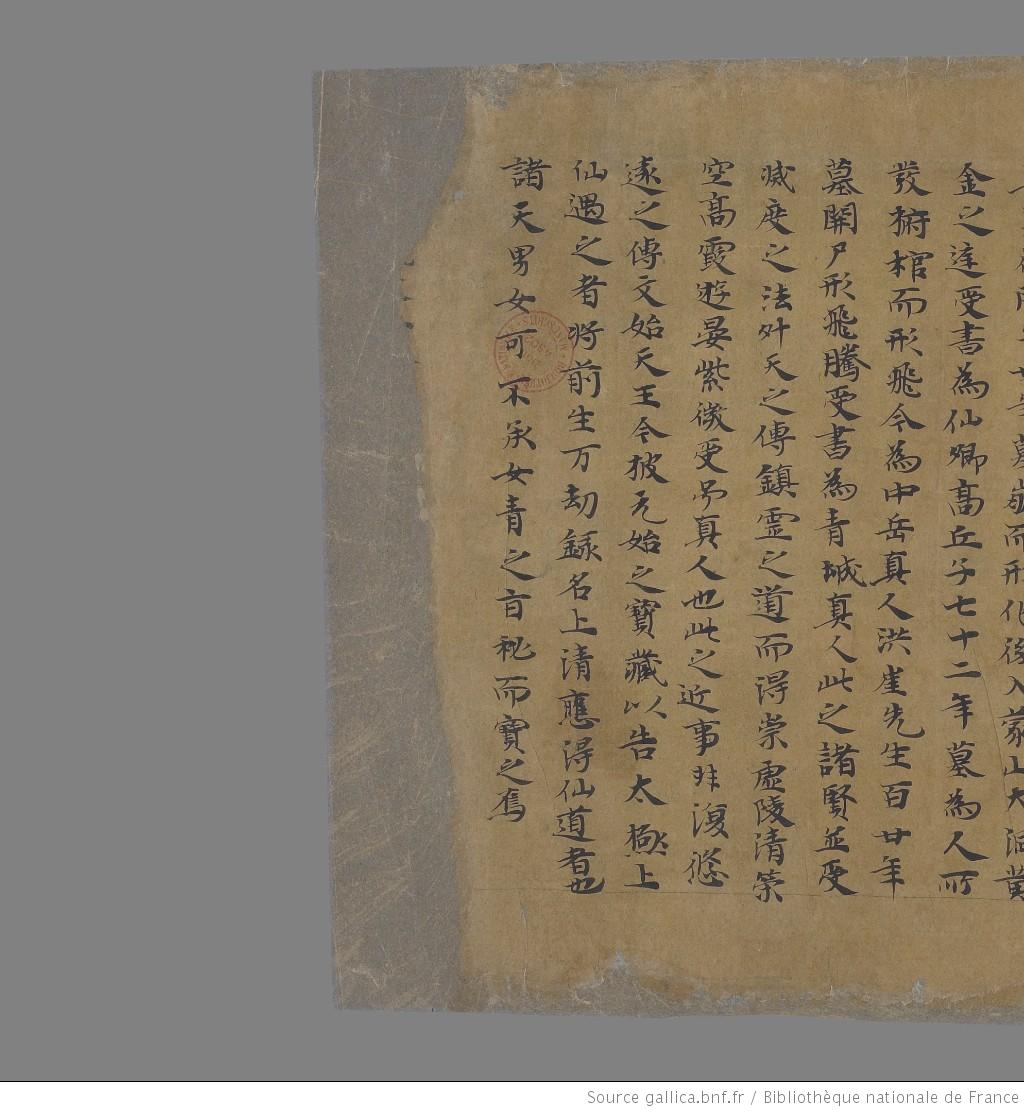 而形化後入蒙山大洞黃
金之達受書為仙卿高丘子七十二年墓為人所
發擗棺而形飛今為中岳真人洪崖先生百廿年
墓開尸形飛騰受書為青城真人此之諸賢並受
滅度之法外天之傳鎮靈之道而得崇虛陵清策
空高霞遊晏紫微受号真人也此之近事非復悠
遠之傳文始天王令披元始之寶藏以告太極上
仙遇之者將前生万劫録名上清應得仙道者也
諸天男女可不承女青之旨秘而寶之焉
Source gallica.bnf.fr / Bibliothèque nationale de France